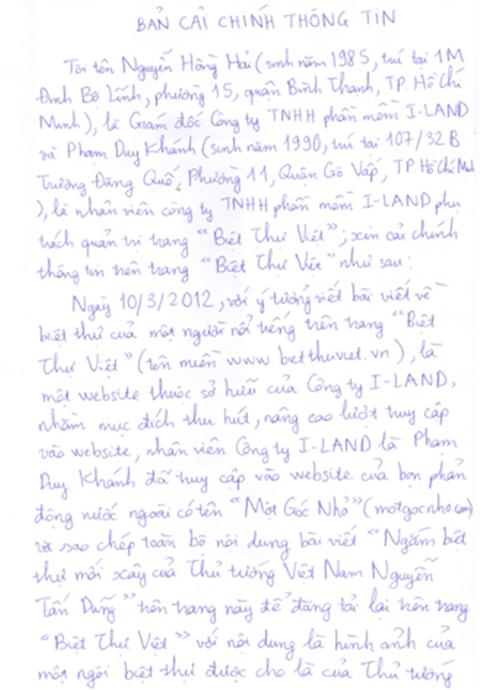 BẢN CẢI CHÍNH THÔNG TIN
Tôi tên Nguyễn Hồng Hải (sinh năm 1985, trú tại 1M
Đinh Bộ Lĩnh, phường 15, quận Bình Thạnh, TP. Hồ Chí
Minh), là Giám đốc Công ty TNHH phần mềm I-LAND
và Phạm Duy Khánh (sinh năm 1990, trú tại 107/32B
Trương Đăng Quế, Phường 11, Quận Gò Vấp, TP. Hồ Chí Minh
), là nhân viên công ty TNHH phần mềm I-LAND phụ
trách quản trị trang "Biệt Thự Việt"; xin cải chính
thông tin trên trang "Biệt Thự Việt" như sau:
Ngày 10/3/2012, với ý tưởng viết bài viết về
biệt thự của một người nổi tiếng trên trang "Biệt
Thự Việt" (tên miền www.bietthuviet.vn), là
một website thuộc sở hữu của Công ty I-LAND,
nhằm mục đích thu hút, nâng cao lượt truy cập
vào website, nhân viên Công ty I-LAND là Phạm
Duy Khánh đã truy cập vào website của bọn phản
động nước ngoài có tên "Một Góc Nhỏ" (motgocnho.com)
và sao chép toàn bộ nội dung bài viết "Ngắm biệt
thự mới xây của Thủ tướng Việt Nam Nguyễn
Tấn Dũng" trên trang này để đăng tải lại trên trang
"Biệt Thự Việt" với nội dung là hình ảnh của
một ngôi biệt thự được cho là của Thủ tướng